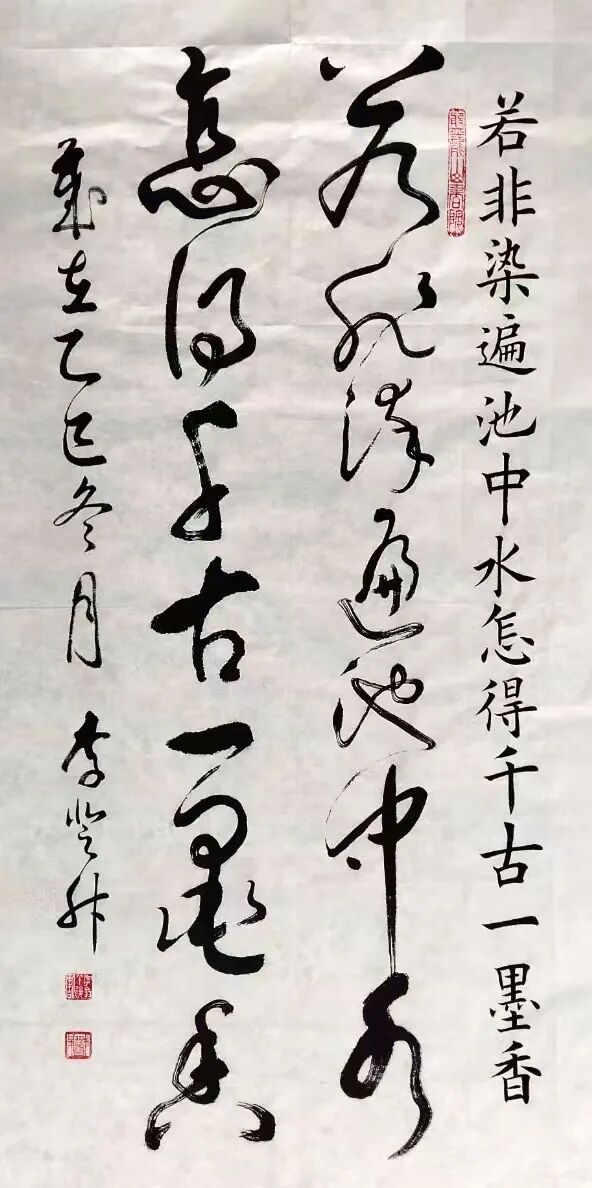 若非染遍池中水怎得千古一墨香
若非染遍池中水
怎得千古一墨香
岁在乙巳冬月 李登升